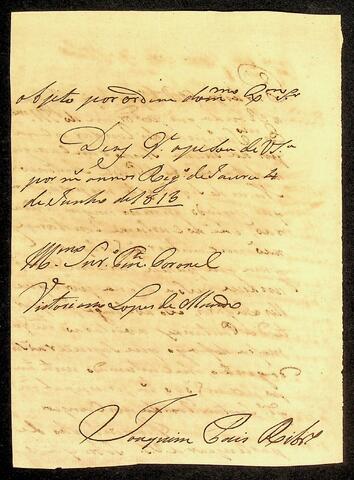 objeto por ordem do m.mo Ex.mo Sr
Deos G.e a pesoa de V.S.a
por m.s annos Reg.o de Taura 4
de Junho de 1813
M.mo Snr. Ten.e Coronel
Victoriano Lopes de Macedo
Joaquim Pais Ribr.o